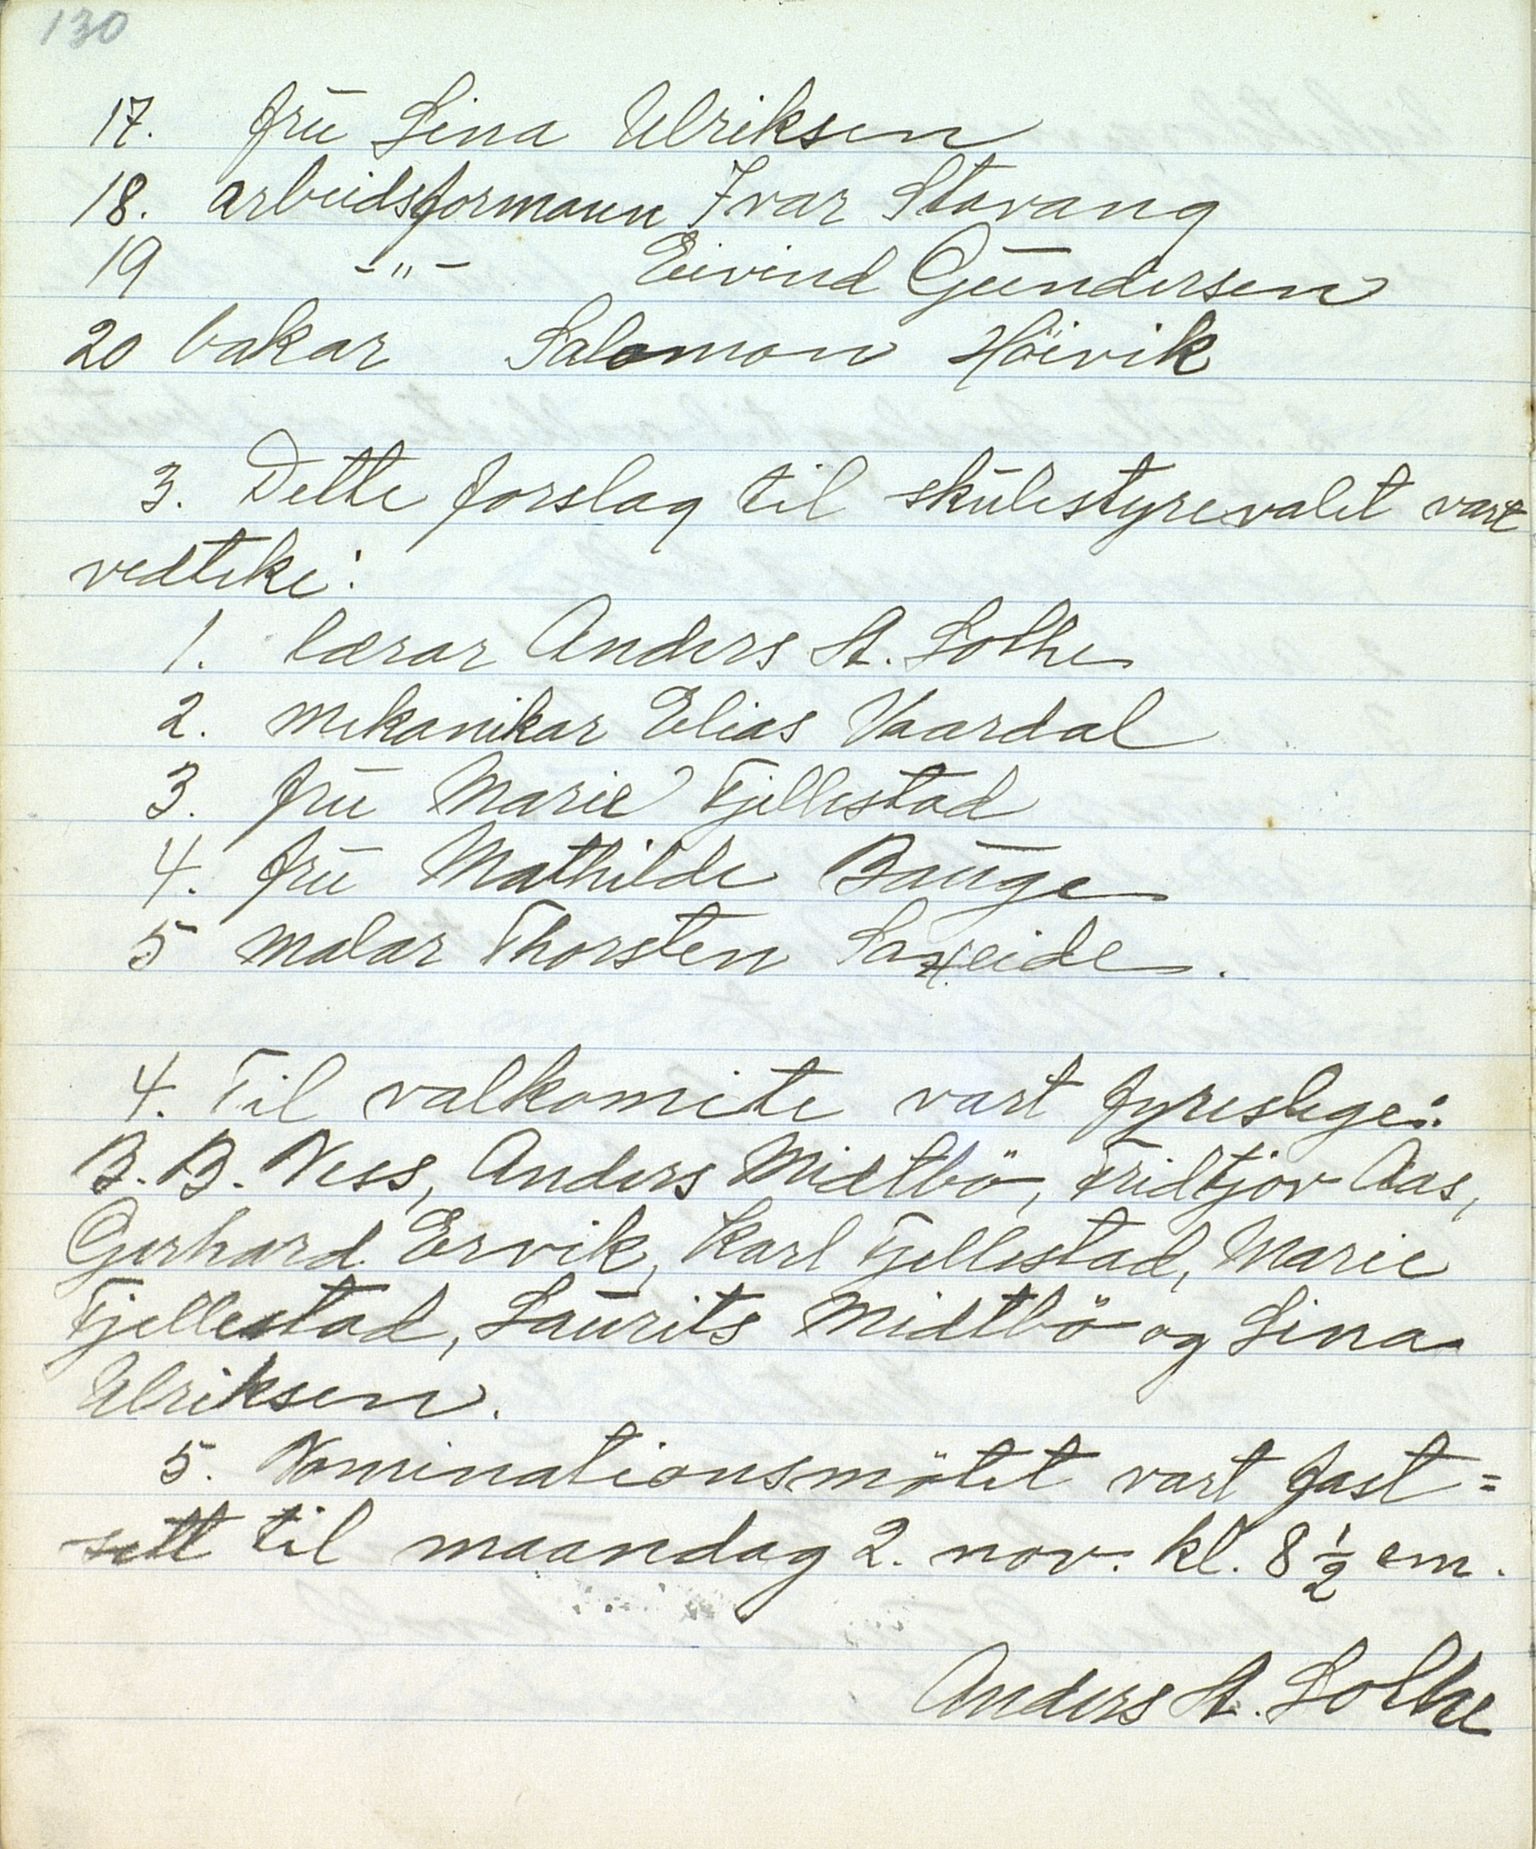 130
17. frŭ Lina Ulriksen
18. arbeidsformann Ivar Stavang
19 -"- Eivind Gŭndersen
20 bakar Salomon Höivik
3. Dette forslag til skŭlestyrevalet vart
vedteke:
1. lærar Anders A. Lothe
2. mekanikar Elias Vaardal
3. frŭ Marie Fjellestad
4. frŭ Mathilde Baŭge
5 malar Thorsten Sakseide.
4. Til valkomite vart fyreslege:
B. B. Ness, Anders Midtbö, Fridtjov Aas,
Gerhard Ervik, Karl Fjellestad, Marie
Fjellestad, Laŭrits Midtbö og Lina
Ulriksen.
5. Nominationsmötet vart fast=
sett til maandag 2. nov. kl. 8 1/2 em.
Anders A. Lothe